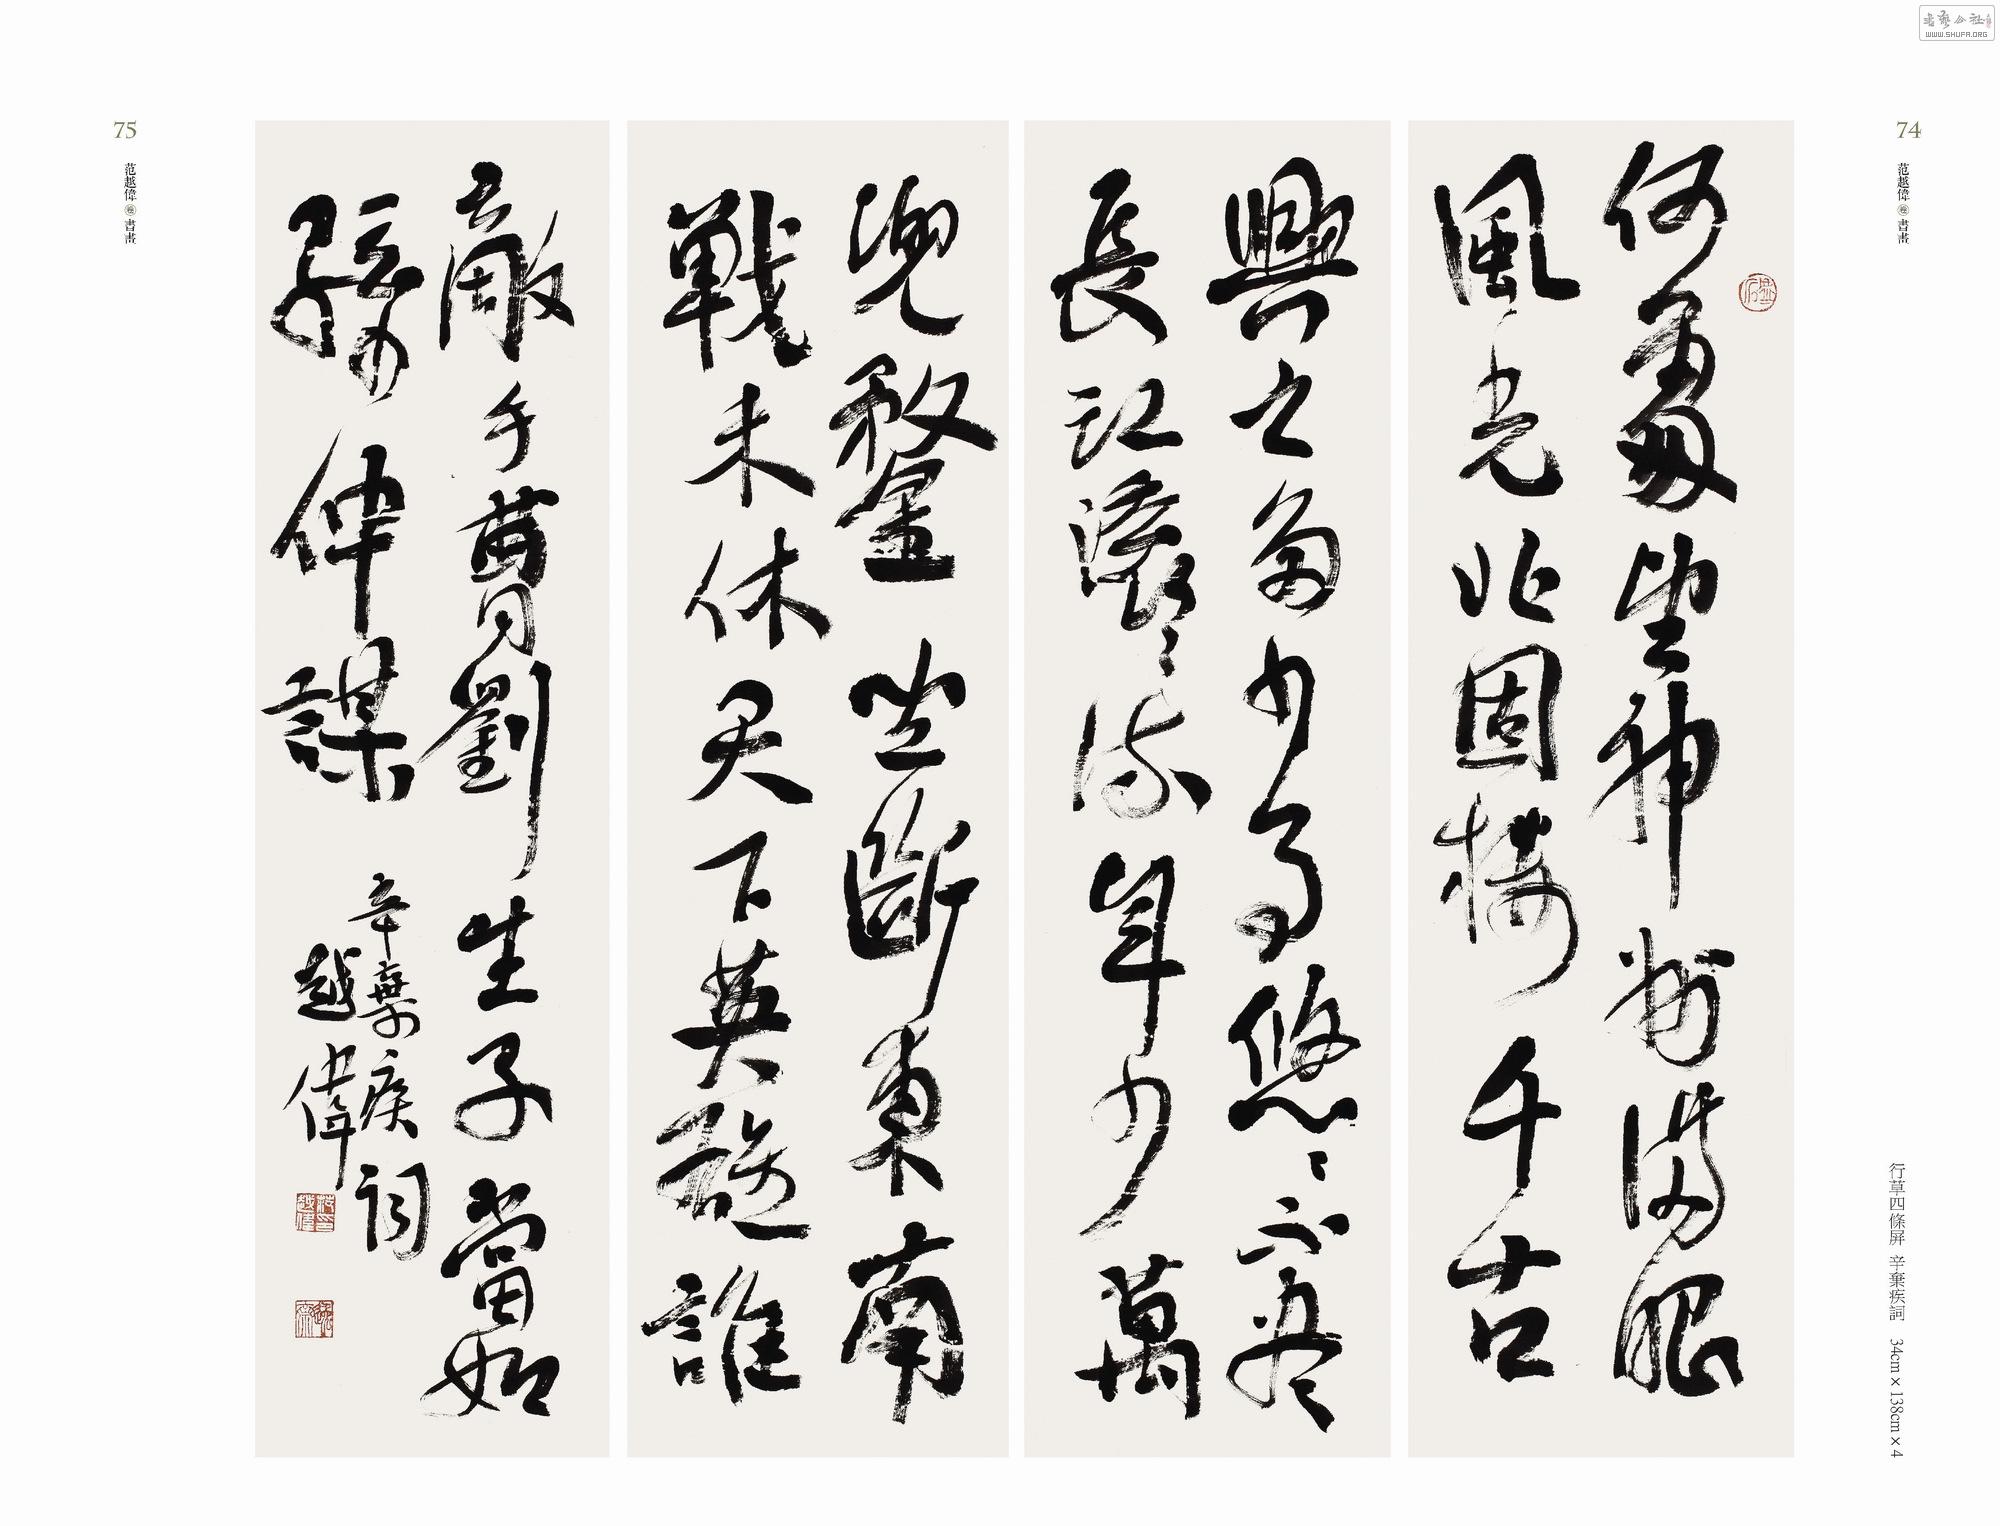 書藝公社
WWW.SHUFA.ORG
74
范越偉 書畫
何處望神州滿眼
風光北固樓千古
興亡多少事悠〻不盡
長江滾〻流年少萬
兜鍪坐斷東南
戰未休天下英雄誰
敵手曹劉生子當如
孫仲謀
辛棄疾詞
越偉
75
范越偉 書畫
行草四條屏 辛棄疾詞 34cm×138cm×4